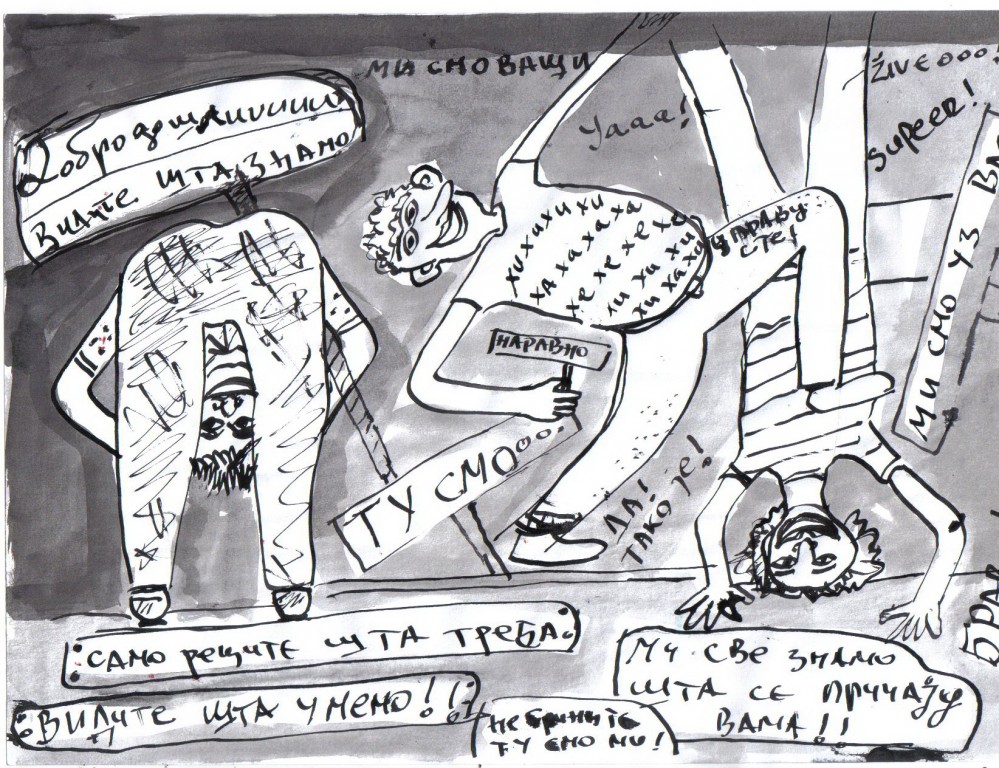 МИ СМО ВАШИ
ŽIVEOOO!
SUPEER!
Yaaa!
Добродошлииииии
ВИДИТЕ ШТА ЗНАМО
хи хи хи хи хи
ха ха ха ха ха
хе хе хе хе хе
хи хи хи хи
хи ха хи
У ПРАВУ
СТЕ!
НАРАВНО
МИ СМО УЗ
ТУ СМО...
ДА!
ТАКО ЈЕ!
САМО РЕЦИТЕ ШТА ТРЕБА.
ВИДИТЕ ШТА УМЕМО!!
НЕ БРИНИТЕ
ТУ СМО МИ!
МИ СВЕ ЗНАМО
ШТА СЕ ПРИЧАЈУ
ВАМА!!